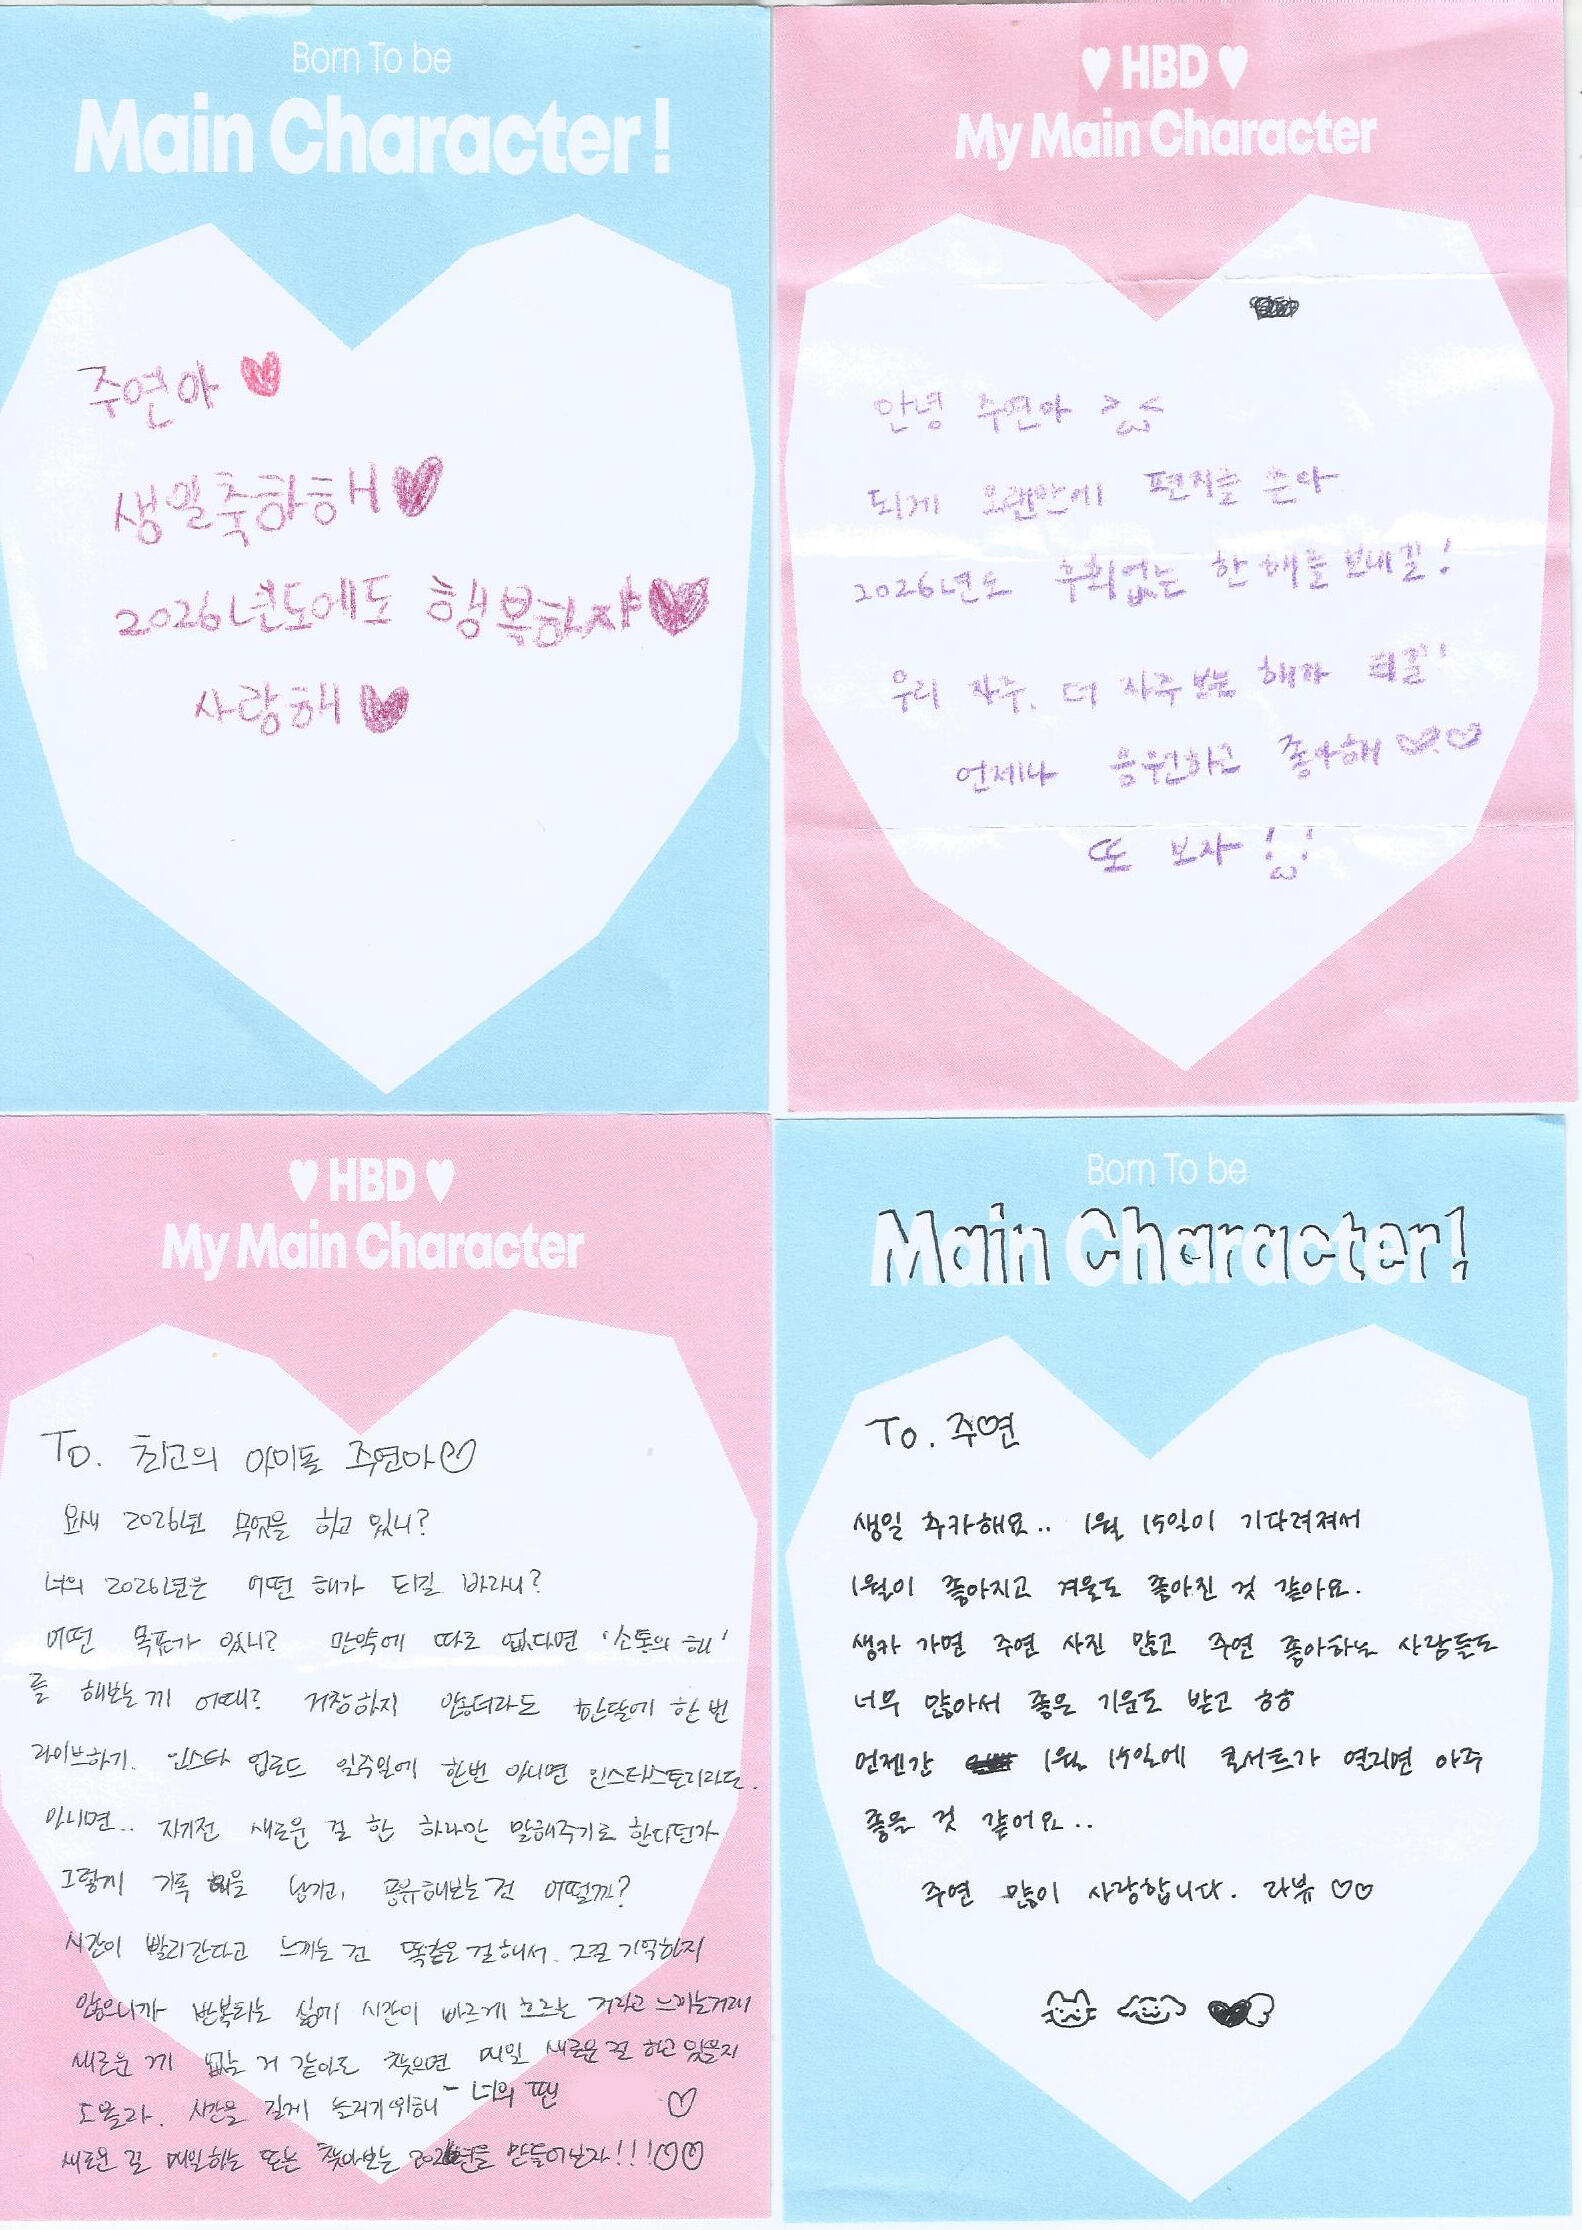 Born To be
Main Character!
주연아
생일축하해
2026년도에도 행복하쟈
사랑해
♥ HBD ♥
My Main Character
안녕 주연아 >ω<
되게 오랜만에 편지를 쓴다
2026년도 후회없는 한 해를 보내길!
우리 자주, 더 자주 보는 해가 되길!
언제나 응원하고 좋아해 ♡♡
또 보자 !ω!
♥ HBD ♥
My Main Character
To. 최고의 아이돌 주연아♡
요새 2026년 무엇을 하고 있니?
너의 2026년은 어떤 해가 되길 바라니?
어떤 목표가 있니? 만약에 따로 없다면 '소통의 해'
를 해보는 게 어때? 거창하지 않더라도 한달에 한 번
라이브하기. 인스타 업로드 일주일에 한번 아니면 인스타스토리라도.
아니면.. 자기전 새로운 걸 한 하나만 말해주기로 한다던가
그렇게 기록을 남기고, 공유해보는 건 어떨까?
시간이 빨리간다고 느끼는 건 똑같은 걸 해서. 그걸 기억하지
않으니까 반복되는 삶에 시간이 빠르게 흐르는 거라고 느끼는거래
새로운 게 없는 거 같아도 찾으면 매일 새로운 걸 하고 있을지
도 몰라. 시간을 길게 늘리기 위해 - 너의 팬 ♡
새로운 걸 매일하는 또는 찾아보는 2026년을 만들어보자!!!♡♡
Born To be
Main Character!
To. 주연
생일 추카해요.. 1월 15일이 기다려져서
1월이 좋아지고 겨울도 좋아진 것 같아요.
생카 가면 주연 사진 많고 주연 좋아하는 사람들도
너무 많아서 좋은 기운도 받고 ㅎㅎ
언젠간 1월 15일에 콘서트가 열리면 아주
좋을 것 같어요..
주연 많이 사랑합니다. 라뷰 ♡♡